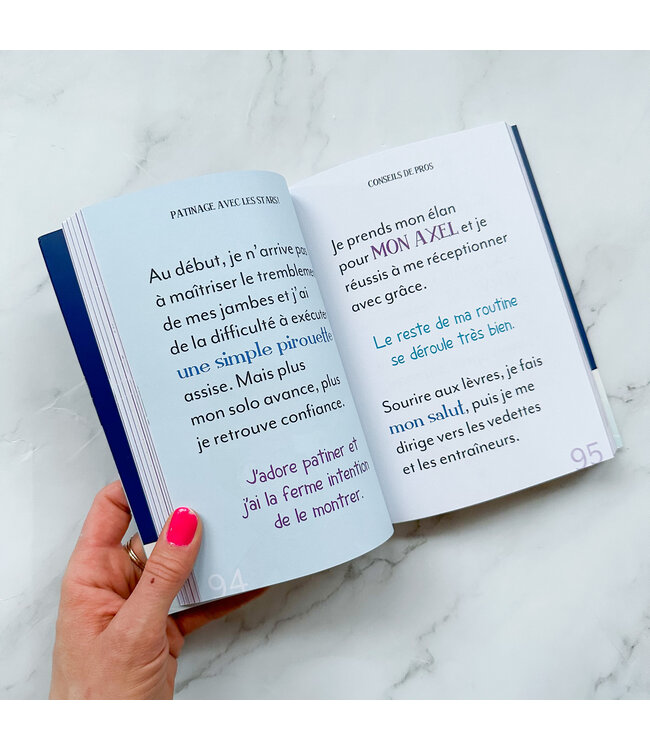 PATINAGE AVEC LES STARS!
Au début, je n'arrive pas
à maîtriser le tremblement
de mes jambes et j'ai
de la difficulté à exécuter
une simple pirouette
assise. Mais plus
mon solo avance, plus
je retrouve confiance.
J'adore patiner et
j'ai la ferme intention
de le montrer.
94
CONSEILS DE PROS
Je prends mon élan
pour MON AXEL et je
réussis à me réceptionner
avec grâce.
Le reste de ma routine
se déroule très bien.
Sourire aux lèvres, je fais
mon salut, puis je me
dirige vers les vedettes
et les entraîneurs.
95